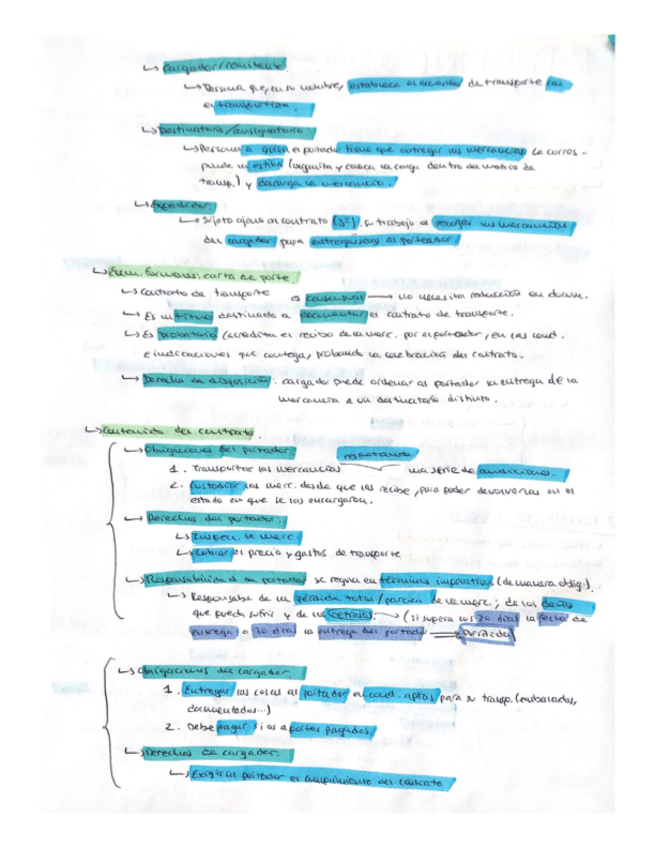 ↳ Cargador/remitente.
↳ Persona que, en su nombre, establece el acuerdo de transporte con
el transportista.
↳ Destinatario/consignatario
↳ Persona a quien el portador tiene que entregar las mercancías. Le corres-
ponde la estiba (organiza y coloca la carga dentro del medio de
transp.) y descarga la mercancía.
↳ Expedidor.
↳ Sujeto ajeno al contrato (3º). Su trabajo es recoger las mercancías
del cargador para entregárselas al porteador.
↳ Elem. formales: carta de porte.
↳ Contrato de transporte es consensual → no necesita redacción en docum.
↳ Es un título destinado a documentar el contrato de transporte.
↳ Es probatorio (acredita el recibo de la merc. por el porteador, en las cond.
e indicaciones que contenga, probando la celebración del contrato.
↳ Derecho de disposición: cargador puede ordenar al portador la entrega de la
mercancía a un destinatario distinto.
↳ Contenido del contrato.
↳ Obligaciones del portador:
respetando
1. Transportar las mercancías una serie de condiciones.
2. Custodiar las merc. desde que las recibe, para poder devolverlas en el
estado en que se las encargaron.
↳ Derechos del portador:
↳ Inspecc. la merc.
↳ Cobrar el precio y gastos de transporte
↳ Responsabilidad de portador se regula en términos imperativos (de manera oblig.).
↳ Responsable de la pérdida total/parcial de la merc.; de los daños
que pueda sufrir y de los retrasos. → (si supera los 20 días la fecha de
entrega o 30 días la entrega del portador ⟹ Perdida)
↳ Obligaciones del cargador.
1. Entregar las cosas al portador en cond. aptas para su transp. (embaladas,
documentadas...)
2. Debe pagar si es a portes pagados.
↳ Derechos de cargador.
↳ Exigir al portador el cumplimiento del contrato